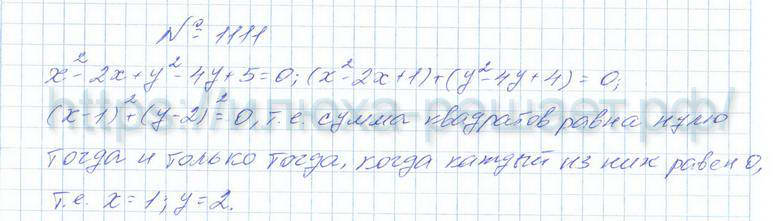 № 1111
x² - 2x + y² - 4y + 5 = 0; (x² - 2x + 1) + (y² - 4y + 4) = 0;
(x - 1)² + (y - 2)² = 0, т.е. сумма квадратов равна нулю
тогда и только тогда, когда каждый из них равен 0,
т.е. x = 1; y = 2.